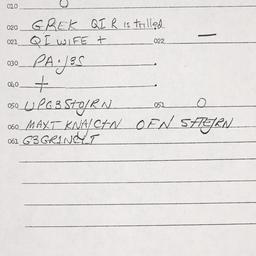 010 O
020 GREK QIR is trilled
021 QI WIFE + 022 —
030 PA·J3S .
040 + .
050 UPGBStO/RN 051 O
060 MAXT KNA/C+N OFN
061 G3GRINC/.T